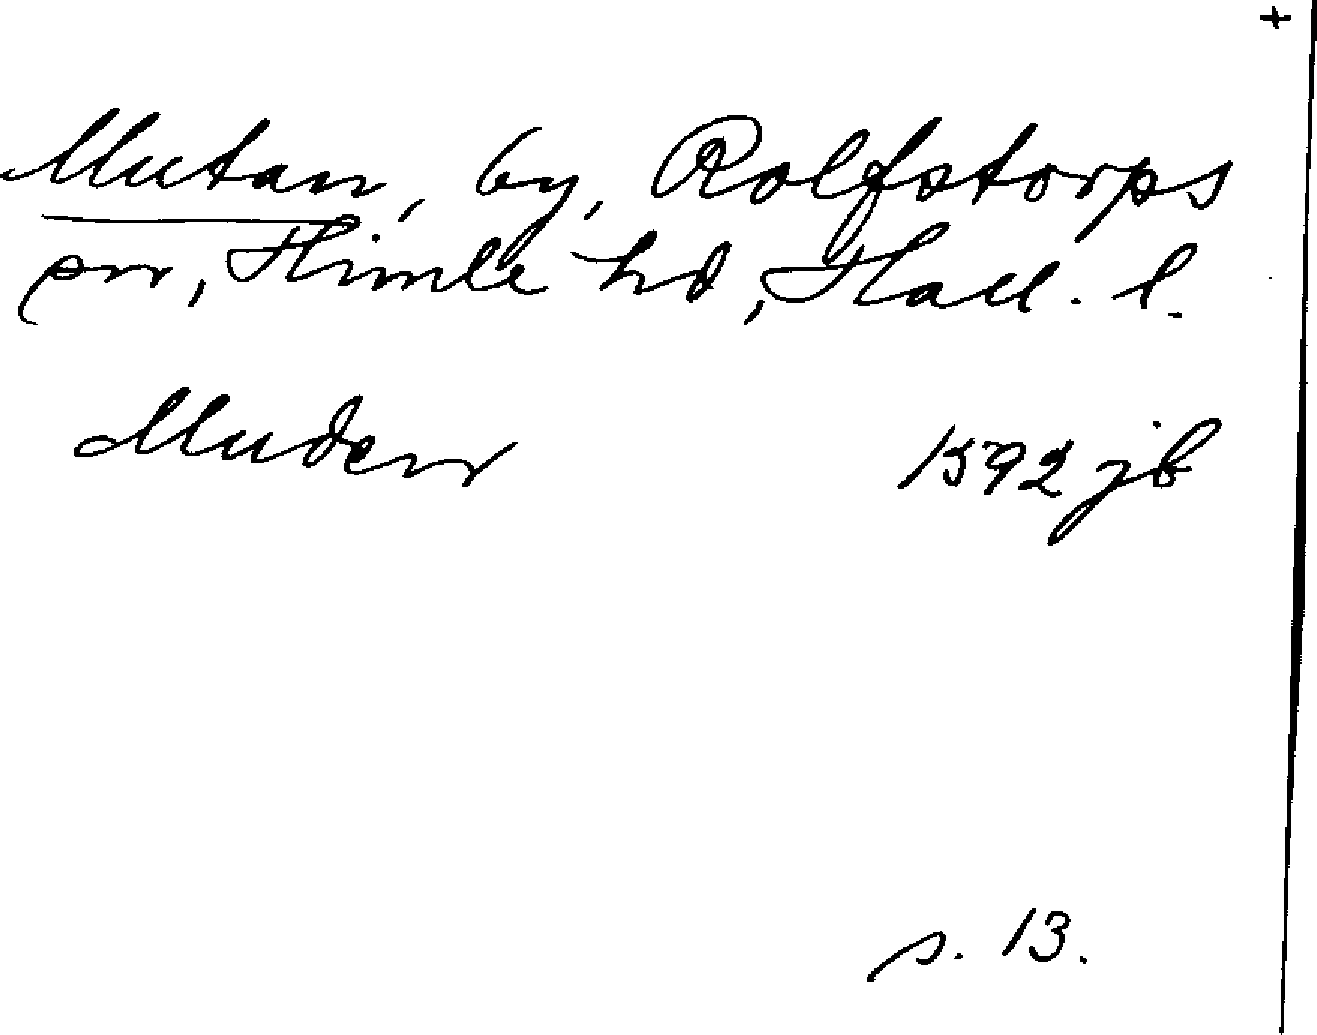 +
Mutan, by, Rolfstorps
sn, Himle hd, Hall. l.
Muden 1592 jb
s. 13.